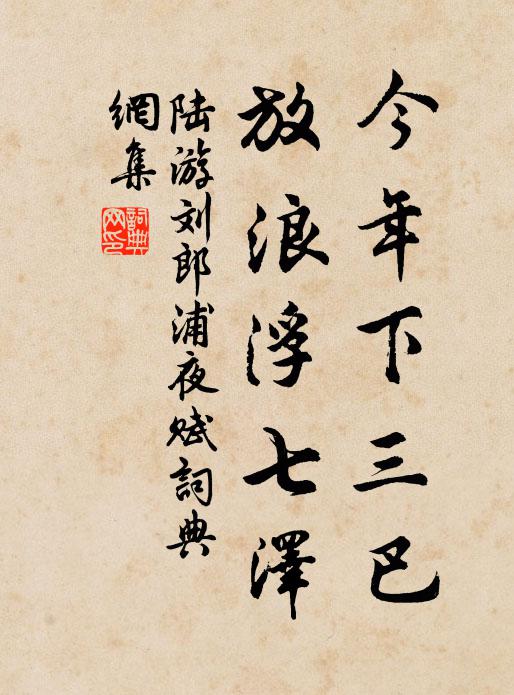 今年下三巴
放浪浮七澤
陆游刘郎浦夜赋詞典
網集
詞典
网印